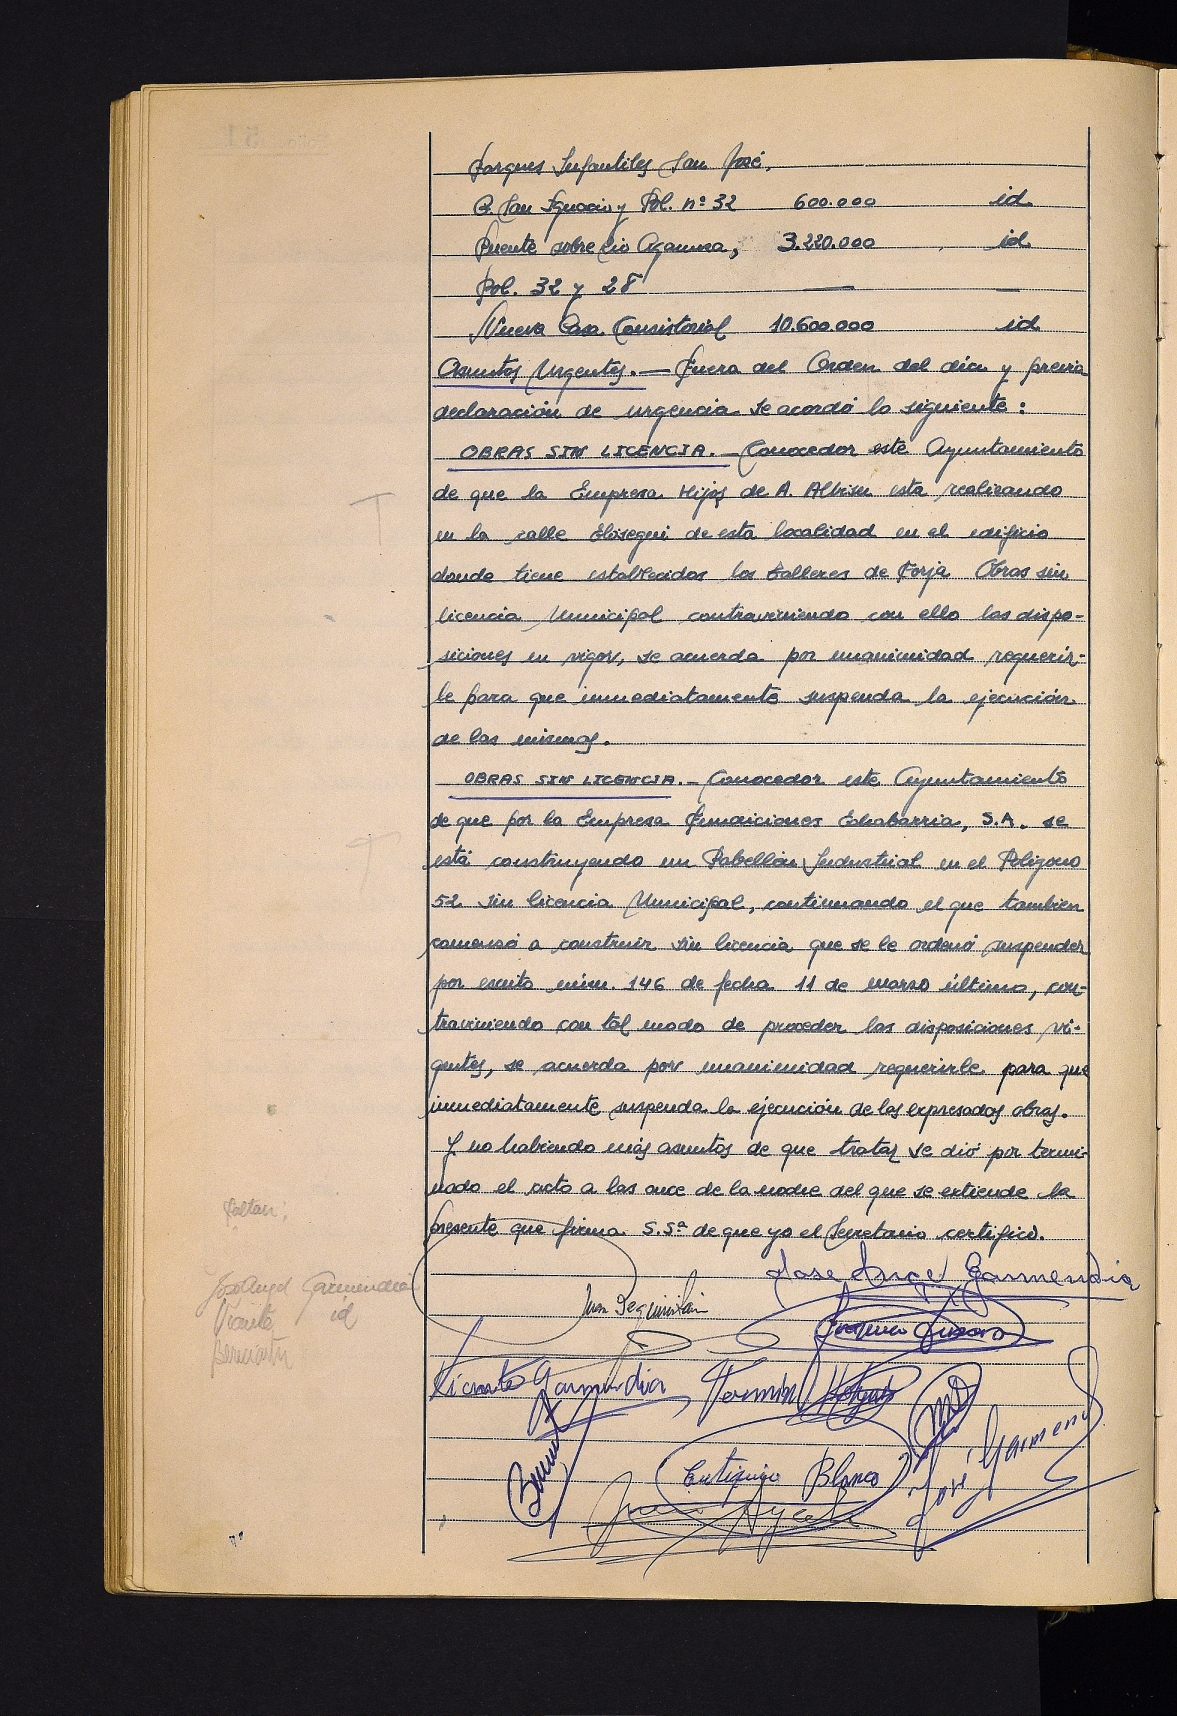 Parques Infantiles San José,
B. San Ignacio y Pol. nº 32 600.000 id
Puente sobre rio Agaunza, 3.220.000 id
Pol. 32 y 28 — —
Nueva Casa Consistorial 10.600.000 id
Asuntos Urgentes.— Fuera del Orden del dia y previa
declaración de urgencia se acordó lo siguiente:
OBRAS SIN LICENCIA.— Conocedor este Ayuntamiento
de que la Empresa Hijos de A. Albisu esta realizando
en la calle Elosegui de esta localidad en el edificio
donde tiene establecidos los talleres de Forja Obras sin
licencia Municipal contraviniendo con ello las dispo-
siciones en vigor, se acuerda por unanimidad requerir-
le para que inmediatamente suspenda la ejecución
de las mismas.
OBRAS SIN LICENCIA.— Conocedor este Ayuntamiento
de que por la Empresa Fundiciones Echabarria, S.A. se
está construyendo un Pabellón Industrial en el Poligono
52 sin licencia Municipal, continuando el que tambien
comenzó a construir sin licencia que se le ordenó suspender
por escrito núm. 146 de fecha 11 de marzo último, con-
traviniendo con tal modo de proceder las disposiciones vi-
gentes, se acuerda por unanimidad requerirle para que
inmediatamente suspenda la ejecución de las expresadas obras.
Y no habiendo más asuntos de que tratar se dió por termi-
nado el acto a las once de la noche del que se extiende la
presente que firma S.Sª de que yo el Secretario certifico.
Faltan:
José Angel Garmendia
Vicente id
Jose Angel Garmendia
Vicente Garmendia
Fermin
Eutiquio Blanco
José Garmend